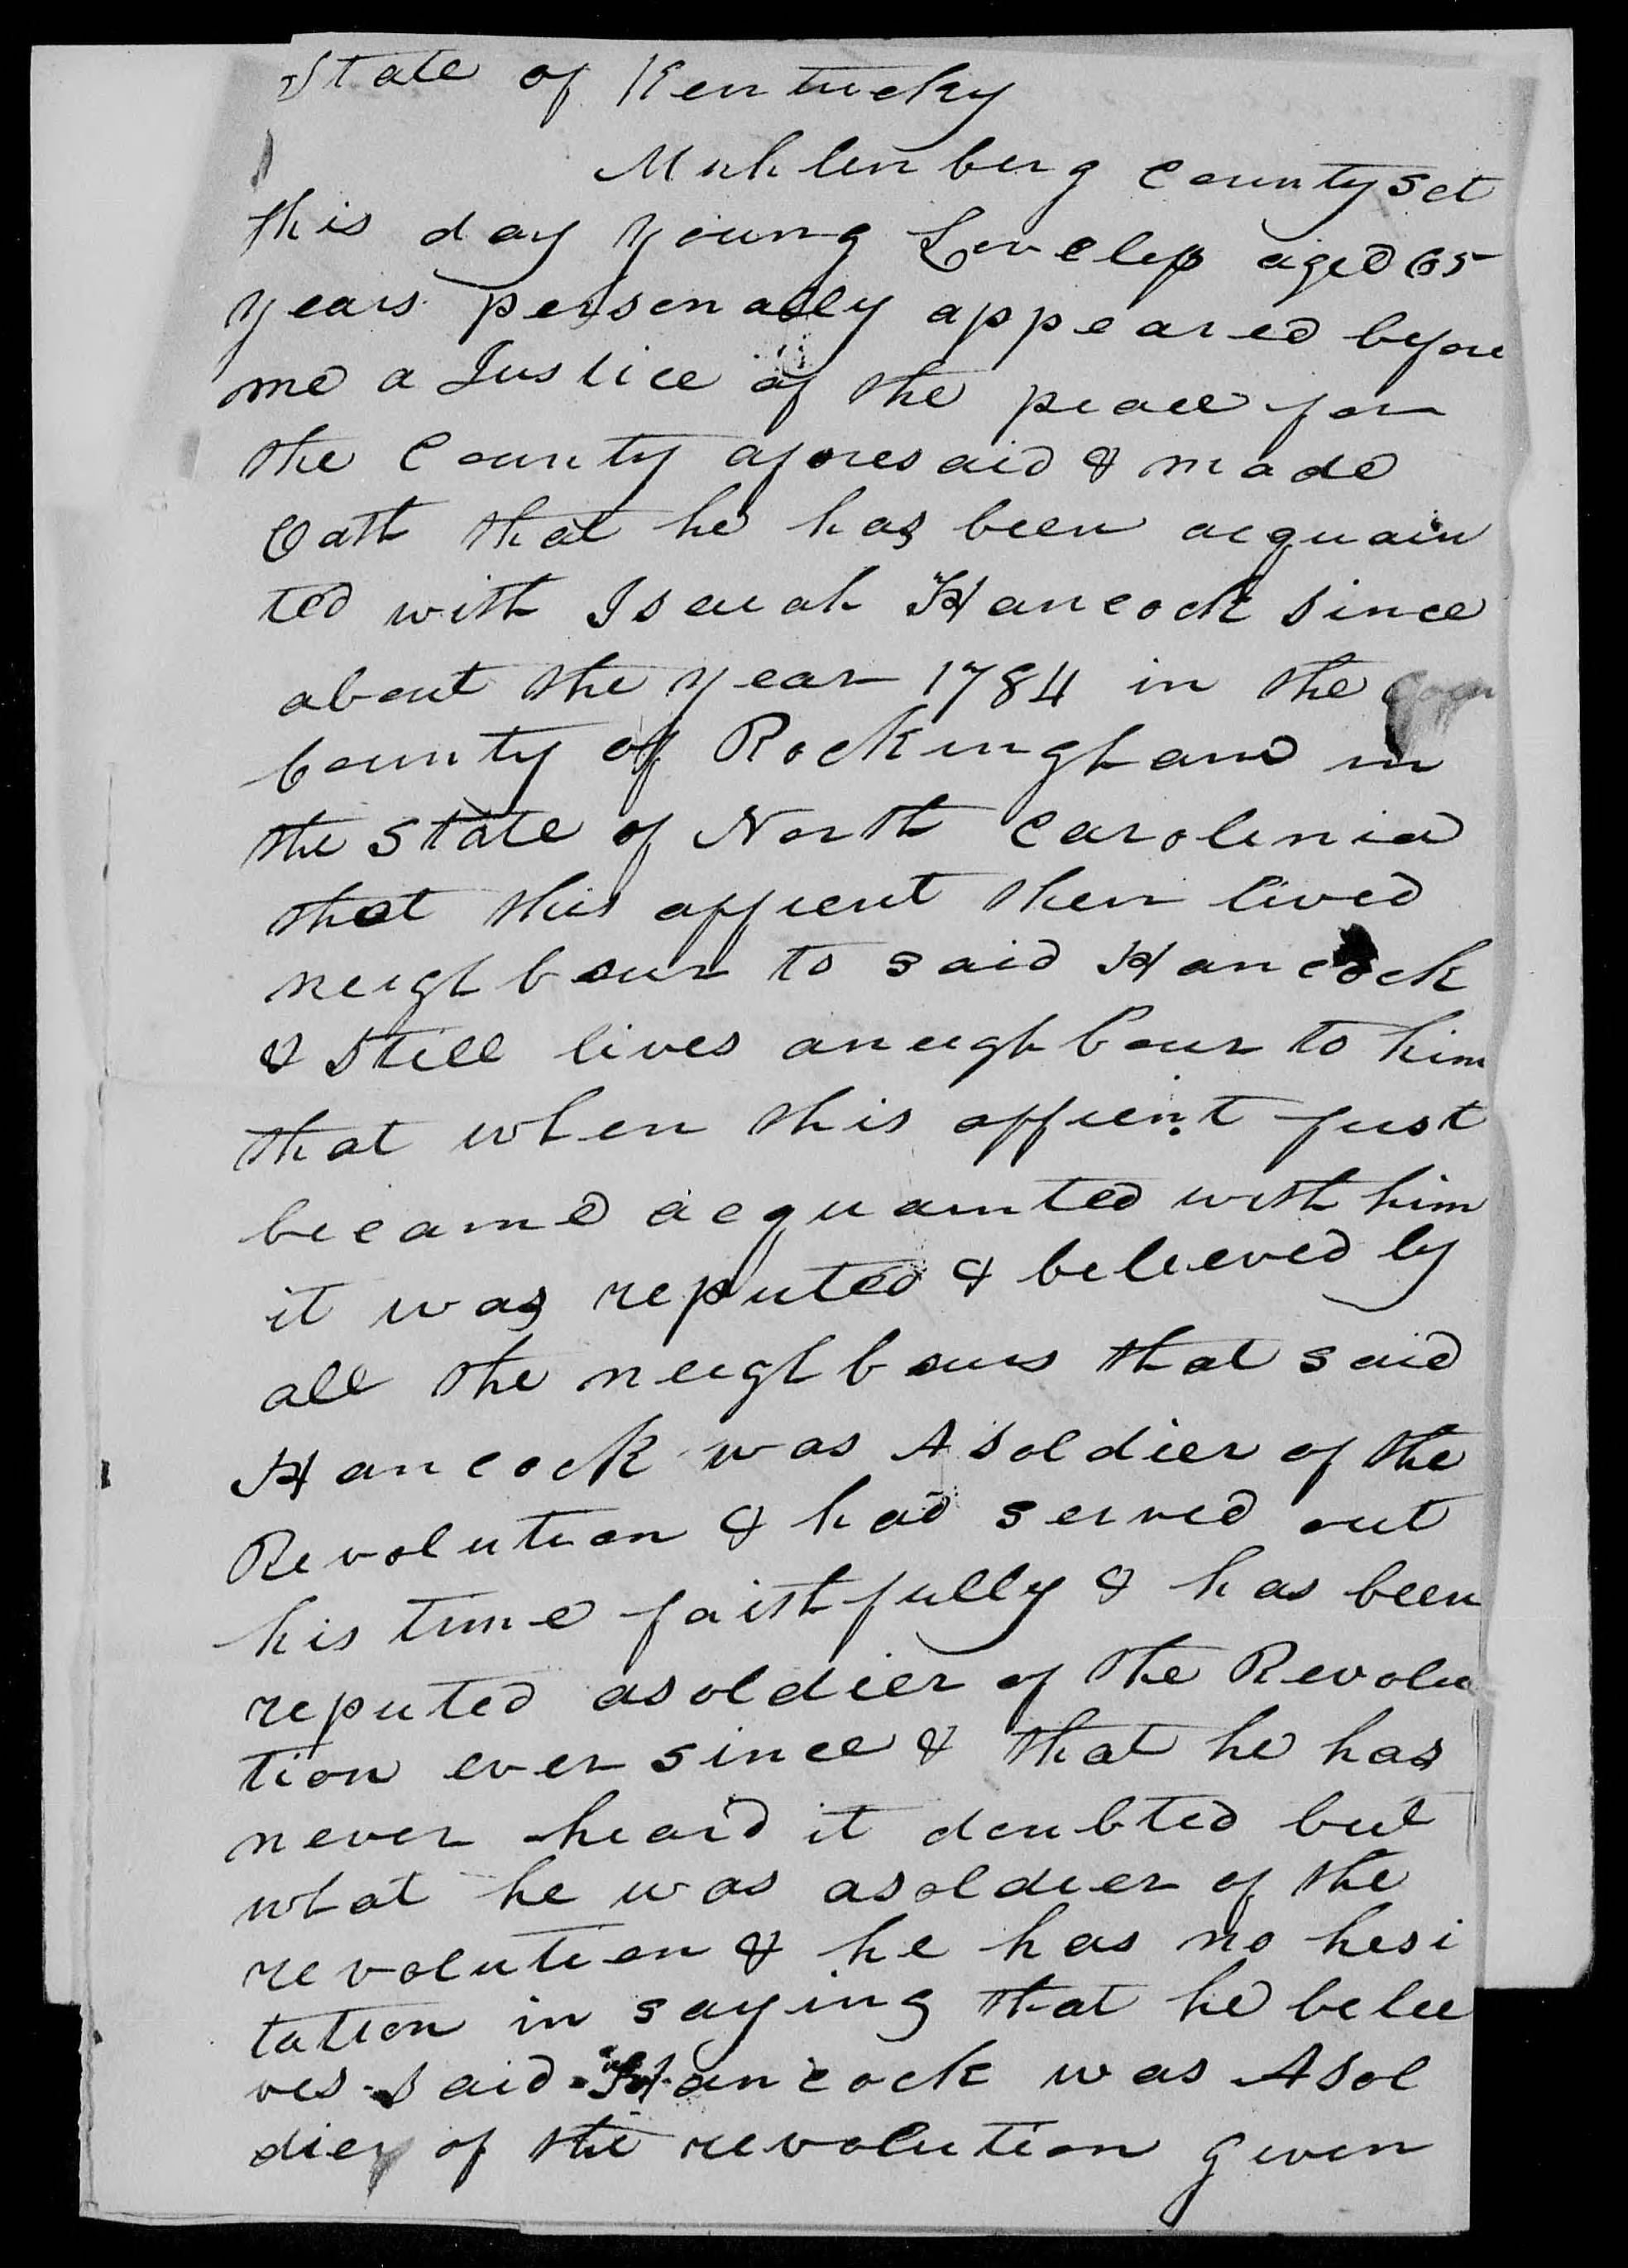 State of Kentucky
Muhlenberg County Sct
this day Young Loveless aged 65
years personally appeared before
me a Justice of the peace for
the County aforesaid & made
Oath that he has been acquain
ted with Isaiah Hancock since
about the year 1784 in the
County of Rockingham in
the State of North Carolinia
that this affient then lived
neighbour to said Hancock
& Still lives aneighbour to him
that when this affient first
became acquainted with him
it was reputed & believed by
all the neighbours that said
Hancock was A soldier of the
Revolution & had served out
his time faithfully & has been
reputed asoldier of the Revolu
tion ever since & that he has
never heard it doubted but
what he was asoldier of the
revolution & he has no hesi
tation in saying that he belie
ves said Hancock was A Sol
dier of the revolution given